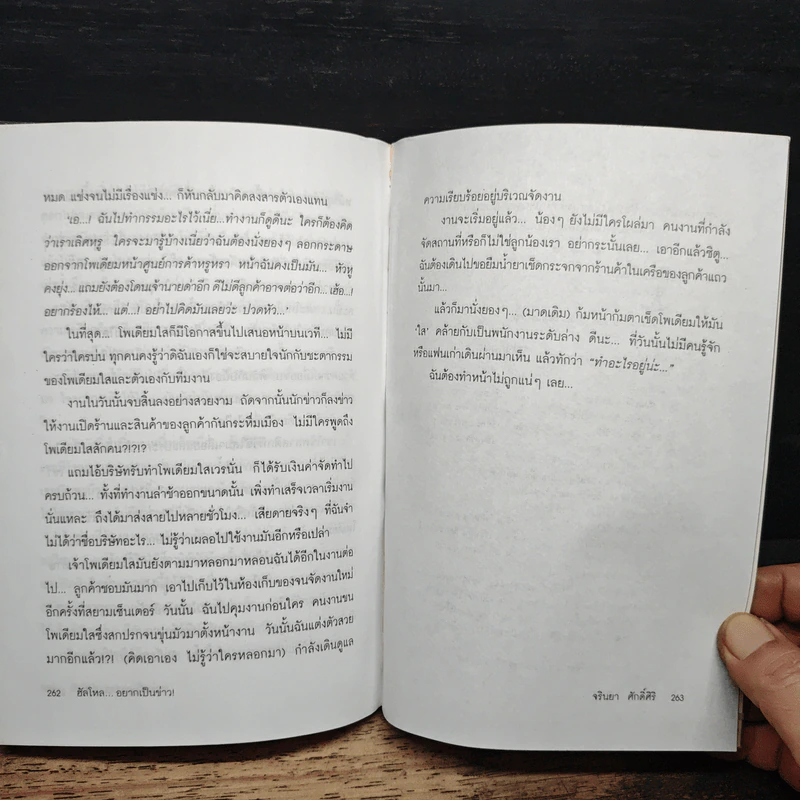 หมด แช่งจนไม่มีเรื่องแช่ง... ก็หันกลับมาคิดสงสารตัวเองแทน
'เอ...! ฉันไปทำกรรมอะไรไว้เนี่ย...ทำงานก็ดูดีนะ ใครก็ต้องคิด
ว่าเราเลิศหรู ใครจะมารู้บ้างเนี่ยว่าฉันต้องนั่งยองๆ ลอกกระดาษ
ออกจากโพเดียมหน้าศูนย์การค้าหรูหรา หน้าฉันคงเป็นมัน... หัวหู
คงยุ่ง... แถมยังต้องโดนเจ้านายด่าอีก ดีไม่ดีลูกค้าอาจต่อว่าอีก...เฮ้อ...!
อยากร้องไห้... แต่...! อย่าไปคิดมันเลยว่ะ ปวดหัว...'
ในที่สุด... โพเดียมใสก็มีโอกาสขึ้นไปเสนอหน้าบนเวที... ไม่มี
ใครว่าใครบ่น ทุกคนคงรู้ว่าดิฉันเองก็ใช่จะสบายใจนักกับชะตากรรม
ของโพเดียมใสและตัวเองกับทีมงาน
งานในวันนั้นจบสิ้นลงอย่างสวยงาม ถัดจากนั้นนักข่าวก็ลงข่าว
ให้งานเปิดร้านและสินค้าของลูกค้ากันกระหึ่มเมือง ไม่มีใครพูดถึง
โพเดียมใสสักคน?!?!?
แถมไอ้บริษัทรับทำโพเดียมใสเวรนั่น ก็ได้รับเงินค่าจัดทำไป
ครบถ้วน... ทั้งที่ทำงานล่าช้าออกขนาดนั้น เพิ่งทำเสร็จเวลาเริ่มงาน
นั่นแหละ ถึงได้มาส่งสายไปหลายชั่วโมง... เสียดายจริงๆ ที่ฉันจำ
ไม่ได้ว่าชื่อบริษัทอะไร... ไม่รู้ว่าเผลอไปใช้งานมันอีกหรือเปล่า
เจ้าโพเดียมใสมันยังตามมาหลอกมาหลอนฉันได้อีกในงานต่อ
ไป... ลูกค้าชอบมันมาก เอาไปเก็บไว้ในห้องเก็บของจนจัดงานใหม่
อีกครั้งที่สยามเซ็นเตอร์ วันนั้น ฉันไปคุมงานก่อนใคร คนงานขน
โพเดียมใสซึ่งสกปรกจนขุ่นมัวมาตั้งหน้างาน วันนั้นฉันแต่งตัวสวย
มากอีกแล้ว!?! (คิดเอาเอง ไม่รู้ว่าใครหลอกมา) กำลังเดินดูแล
262 ฮัลโหล... อยากเป็นข่าว!
ความเรียบร้อยอยู่บริเวณจัดงาน
งานจะเริ่มอยู่แล้ว... น้องๆ ยังไม่มีใครโผล่มา คนงานที่กำลัง
จัดสถานที่หรือก็ไม่ใช่ลูกน้องเรา อย่ากระนั้นเลย... เอาอีกแล้วซิตู...
ฉันต้องเดินไปขอยืมน้ำยาเช็ดกระจกจากร้านค้าในเครือของลูกค้าแถว
นั้นมา...
แล้วก็มานั่งยองๆ... (มาดเดิม) ก้มหน้าก้มตาเช็ดโพเดียมให้มัน
'ใส' คล้ายกับเป็นพนักงานระดับล่าง ดีนะ... ที่วันนั้นไม่มีคนรู้จัก
หรือแฟนเก่าเดินผ่านมาเห็น แล้วทักว่า "ทำอะไรอยู่น่ะ..."
ฉันต้องทำหน้าไม่ถูกแน่ๆ เลย...
จรินยา ศักดิ์ศิริ 263